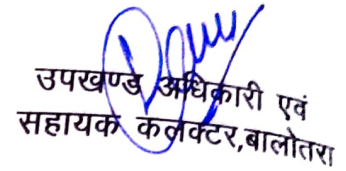 उपखण्ड अधिकारी एवं
सहायक कलक्टर,बालोतरा